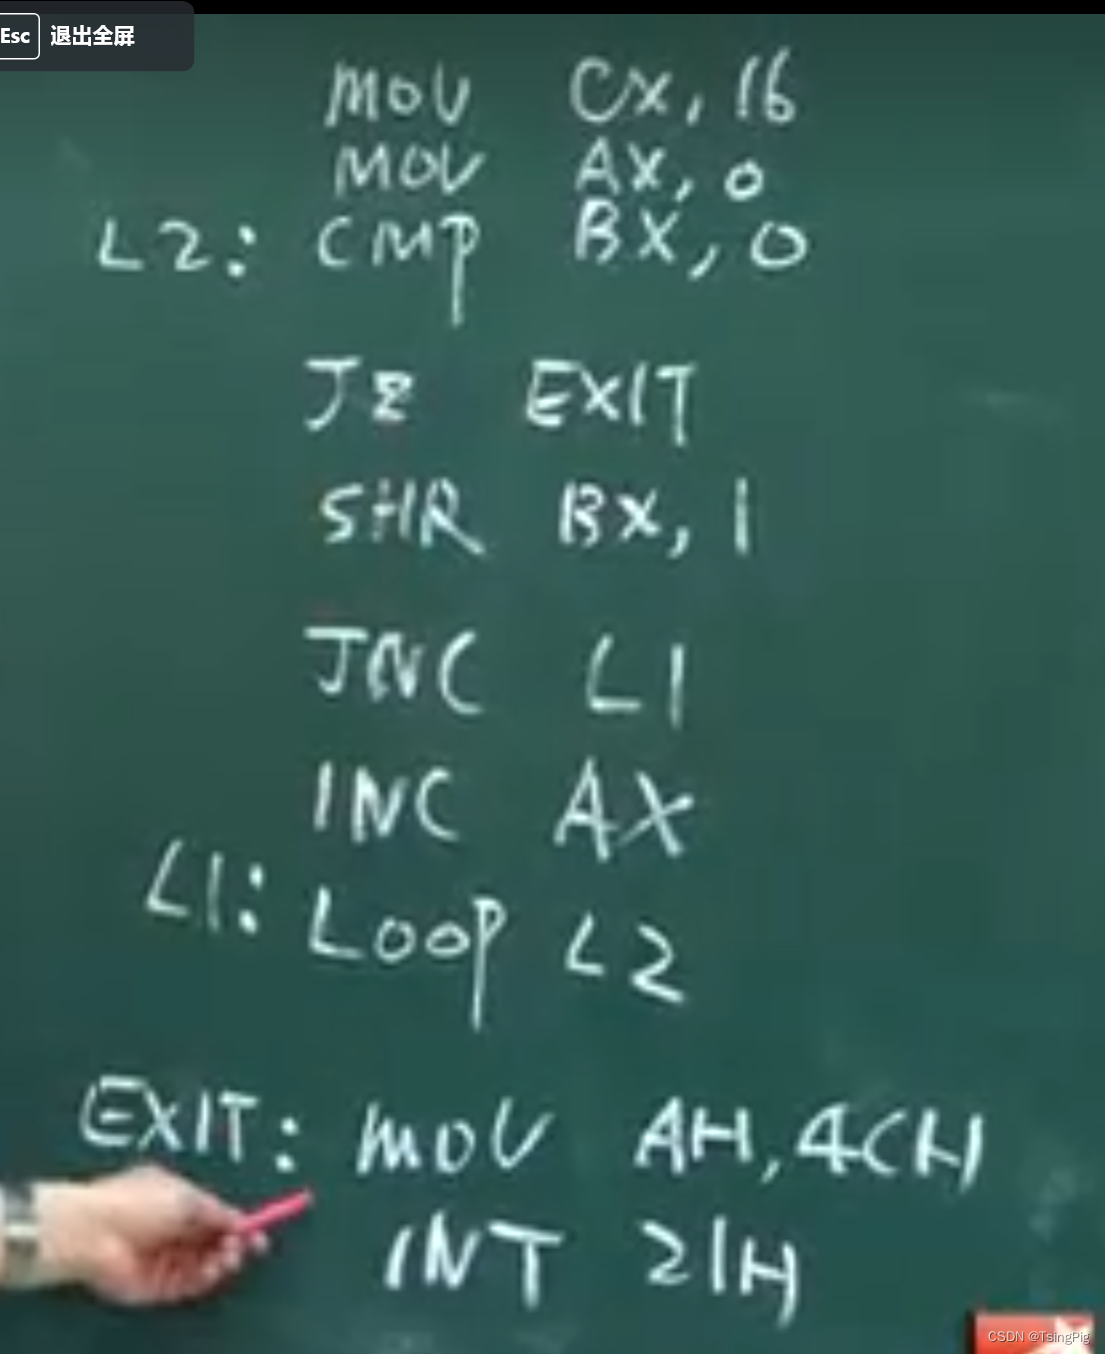 Esc 退出全屏
MOV CX, 16
MOV AX, 0
L2: CMP BX, 0
JZ EXIT
SHR BX, 1
JNC L1
INC AX
L1: LOOP L2
EXIT: MOV AH, 4CH
INT 21H
CSDN @TsingPig